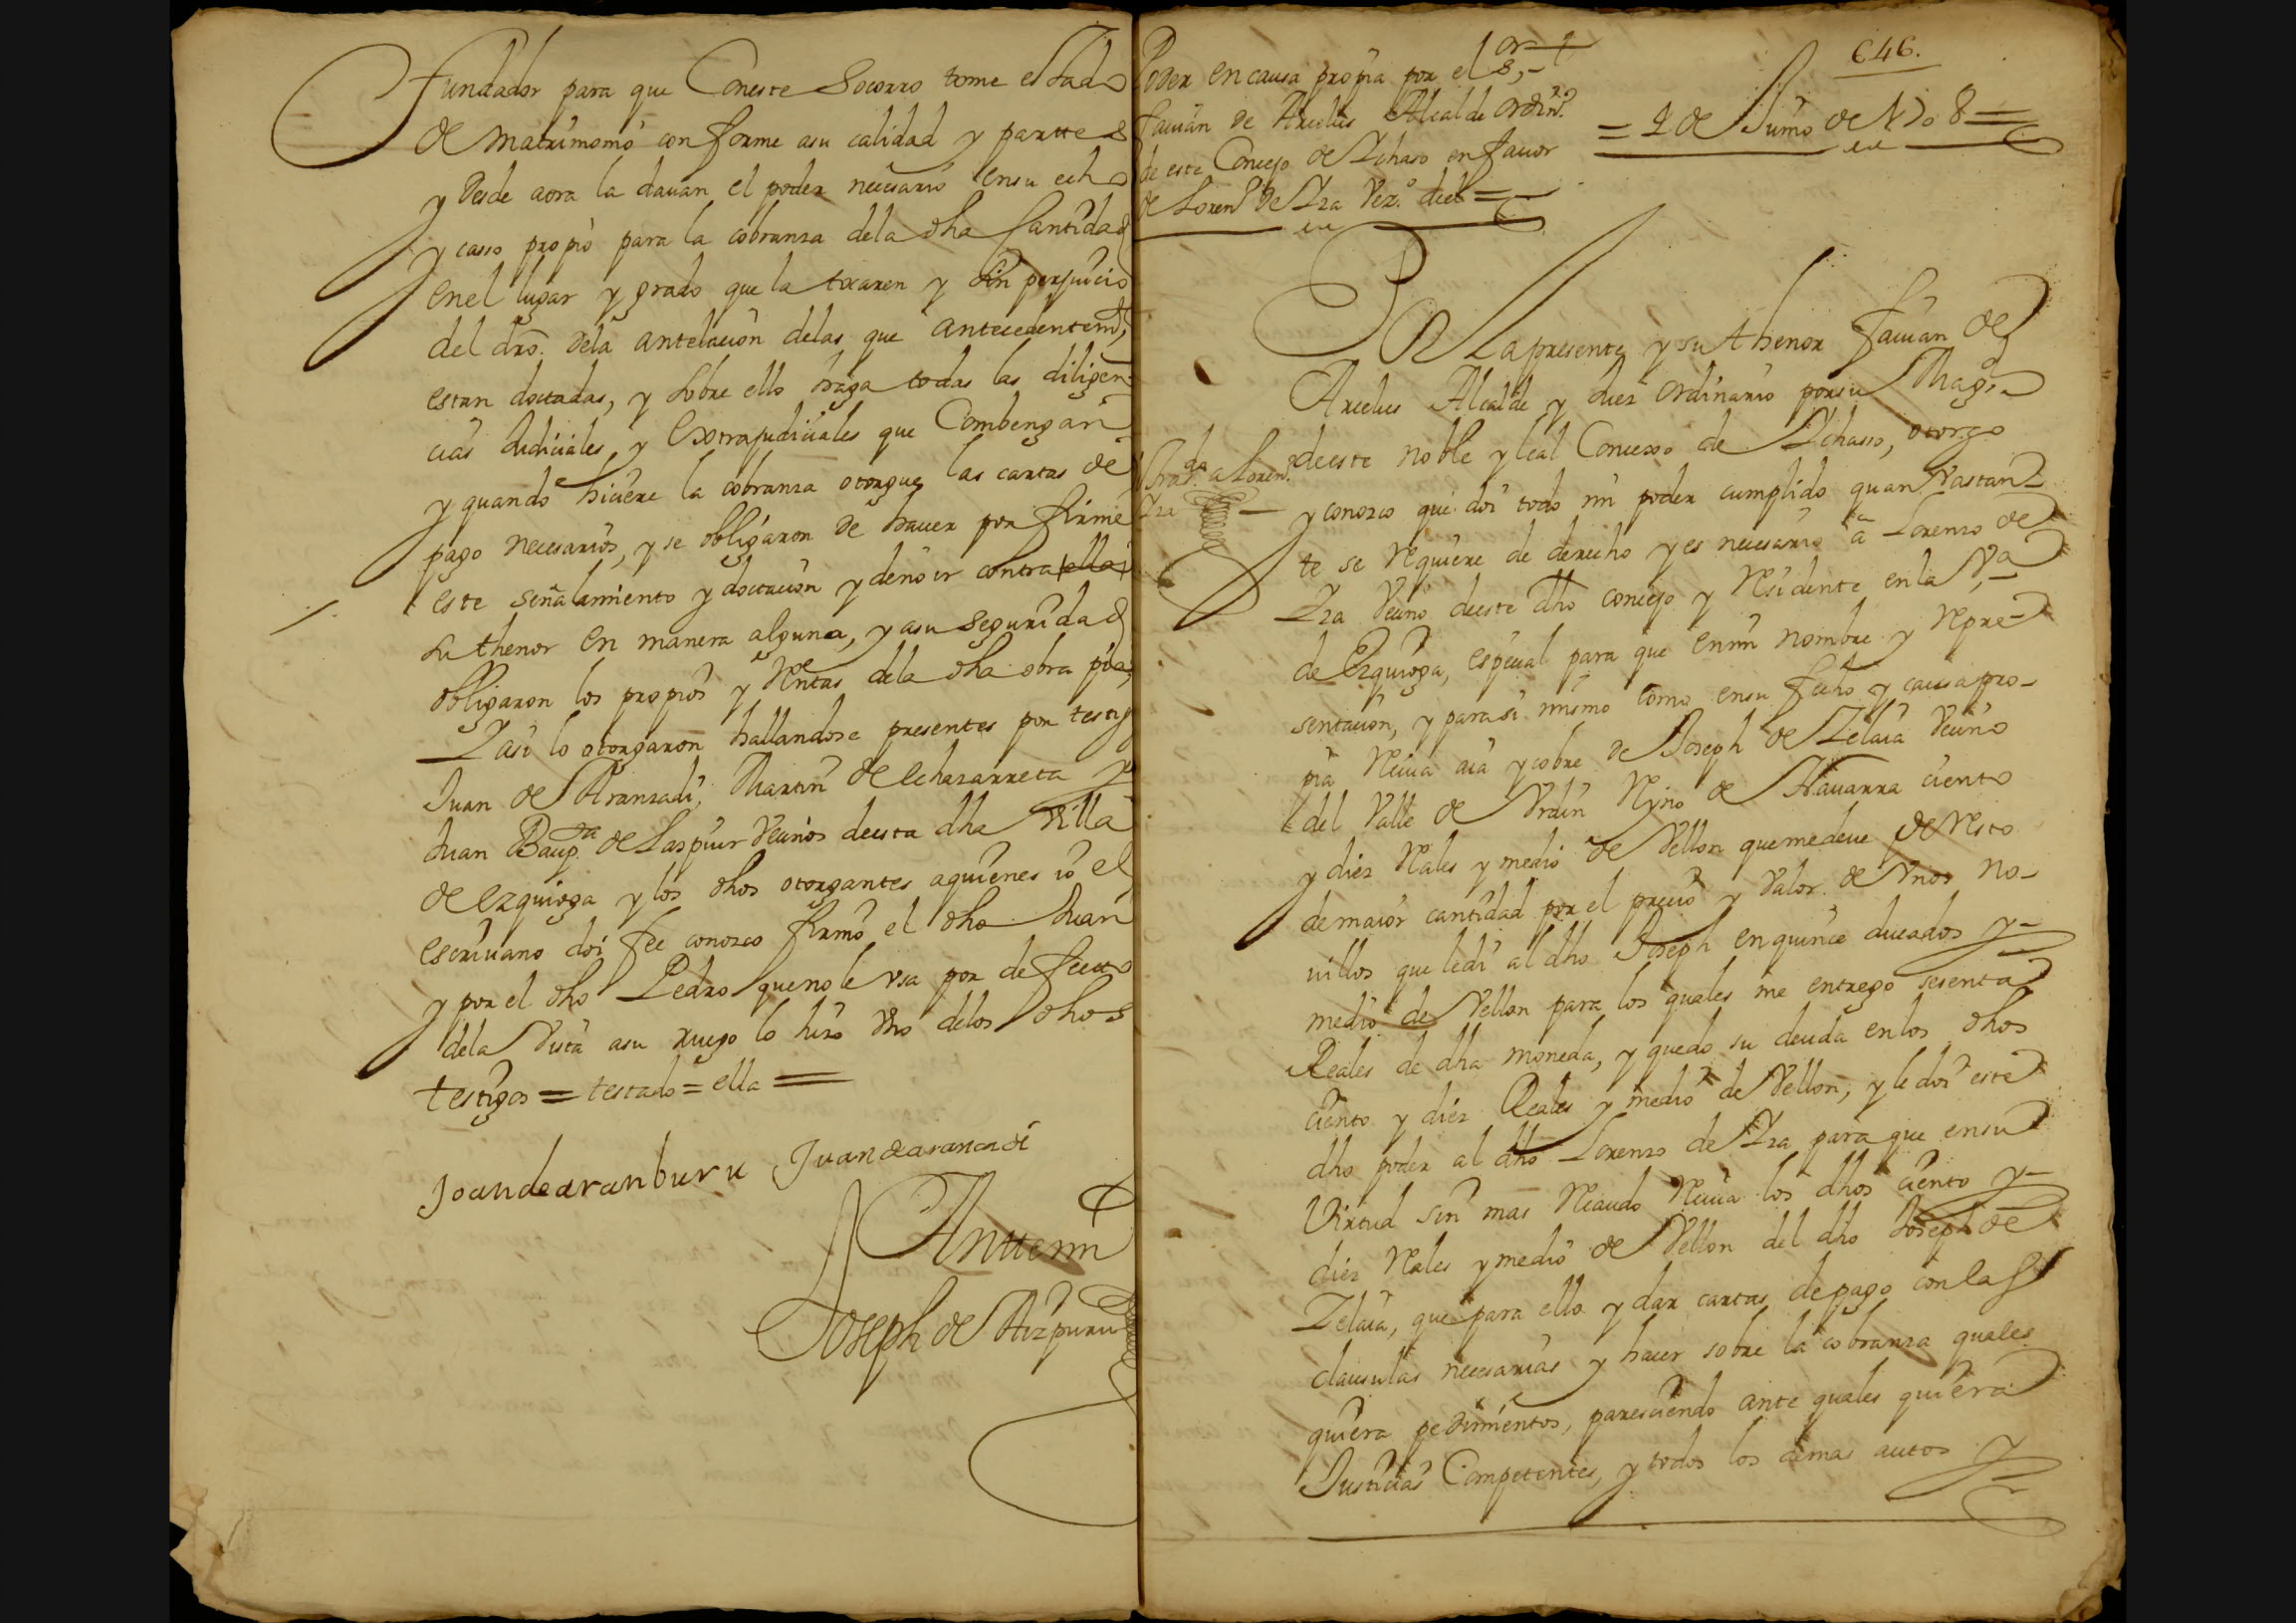 fundador para que Coneste Socorro tome estado
de matrimonio conforme asu calidad y parttes
y desde aora la davan el poder necesario ensu echo
y casso propio para la cobranza dela dha Cantidad
enel lugar y grado que la tocaren y sin perjuicio
del dro. dela antelacion delas que antecedentemte
estan doctadas, y sobre ello haga todas las diligen-
cias Judiciales y Extrajudiciales que Combengan
y quando hiciere la cobranza otorgue las cartas de
pago necesarios, y se obligaron de hauer por firme
este señalamiento y doctacion y denoir contra ella
su thenor en manera alguna, y asu seguridad
obligaron los propios y Rentas dela dha obra pia,
Y asi lo otorgaron hallandose presentes por testigos
Juan de Aranzadi, Martin de echazarreta y
Juan Baupta de Laspiur Vecinos deesta dha villa
de ezquioga y los dhos otorgantes aquienes io el
escriuano doi fee conozco firmo el dho Juan
y por el dho Pedro que no le vsa por defecto
dela Vista asu ruego lo hizo vno delos dhos
testigos = testado = ella =
Joandearanburu Juandearancadi
Anttemi
Joseph de Aizpuru
Poder en causa propia por el Sor
Fauian de Arcelus Alcalde ordino
de este Concejo de Ichaso en fauor
de Lorenzo de Iza Vezo del =
646.
= 2 de Junio de 1708 =
POR La presente y su thenor fauian de
Arcelus Alcalde y Juez ordinario por su Magd
deeste noble y leal Concexo de Ichasso, otorgo
Trasdo a Lorenzo
Iza
y conozco que doi todo mi poder cumplido quan Vastan-
te se requiere de derecho y es necesario a Lorenzo de
Iza Vecino deeste dho concejo y Residente en la Va
de Ezquioga, especial para que en mi nombre y repre-
sentacion, y para si mismo como ensu fecho y causa pro-
pia Reciua aia y cobre de Joseph de Zelaia Vecino
del Valle de Vrdin Reyno de Nauarra ciento
y diez Reales y medio de Vellon que me deue de resto
de maior cantidad por el precio y Valor de Vnos no-
uillos que le di al dho Joseph en quince ducados y
medio de Vellon para los quales me entrego sesenta
Reales de dha moneda, y quedo su deuda en los dhos
ciento y diez Reales y medio de Vellon, y le doi este
dho poder al dho Lorenzo de Iza para que en su
Virtud sin mas Recaudo Reciua los dhos ciento y
diez Reales y medio de Vellon del dho Joseph de
Zelaia, que para ello y dar cartas de pago con las
clausulas necesarias y hacer sobre la cobranza quales
quiera pedimientos, paresciendo ante quales quiera
Justicias Competentes, y todos los demas autos y